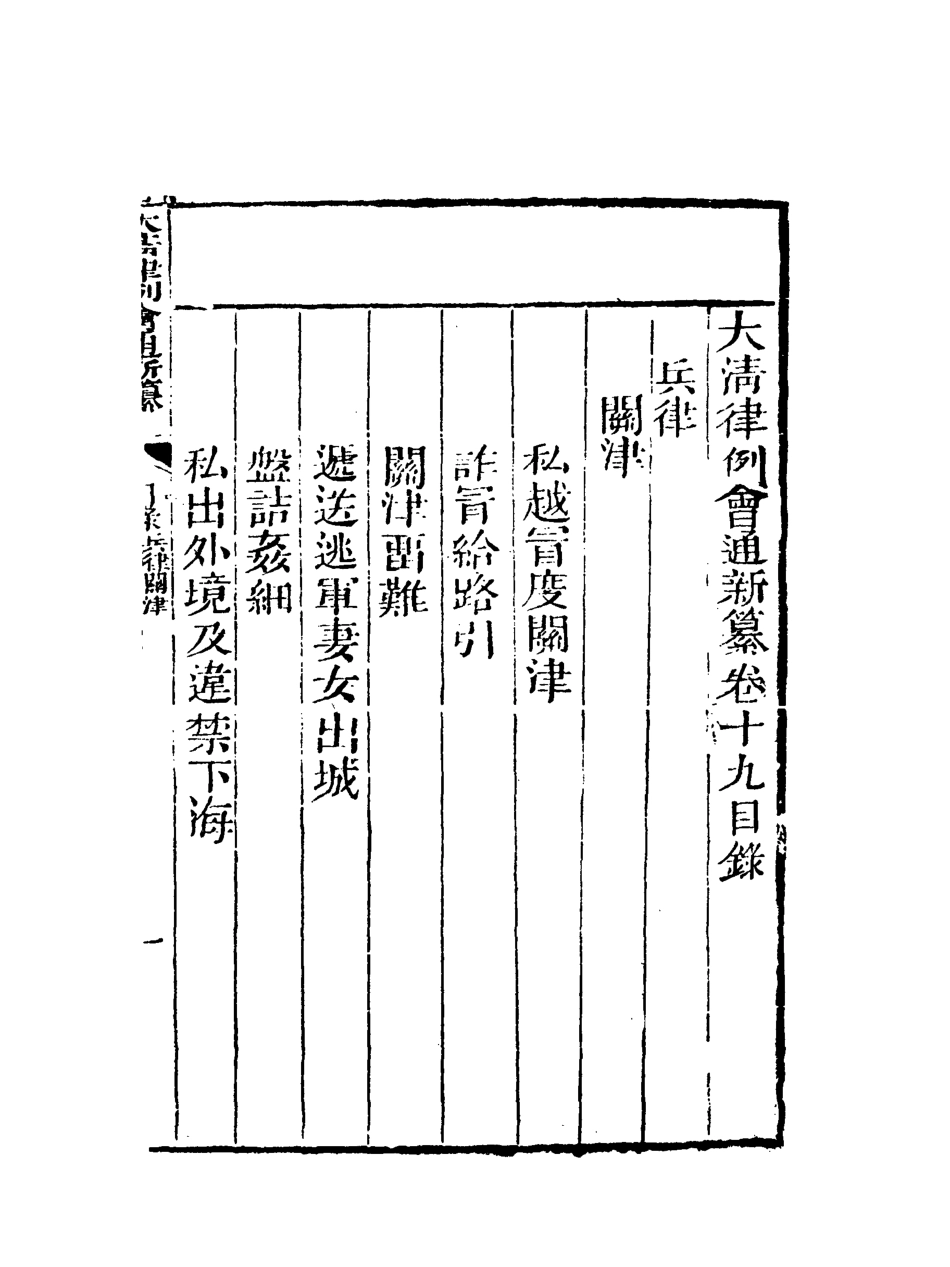 大清律例會通新纂卷十九目錄
兵律
關津
私越冒度關津
詐冒給路引
關津畱難
遞送逃軍妻女出城
盤詰姦細
私出外境及違禁下海
大清律例會通新纂
兵律關津
一